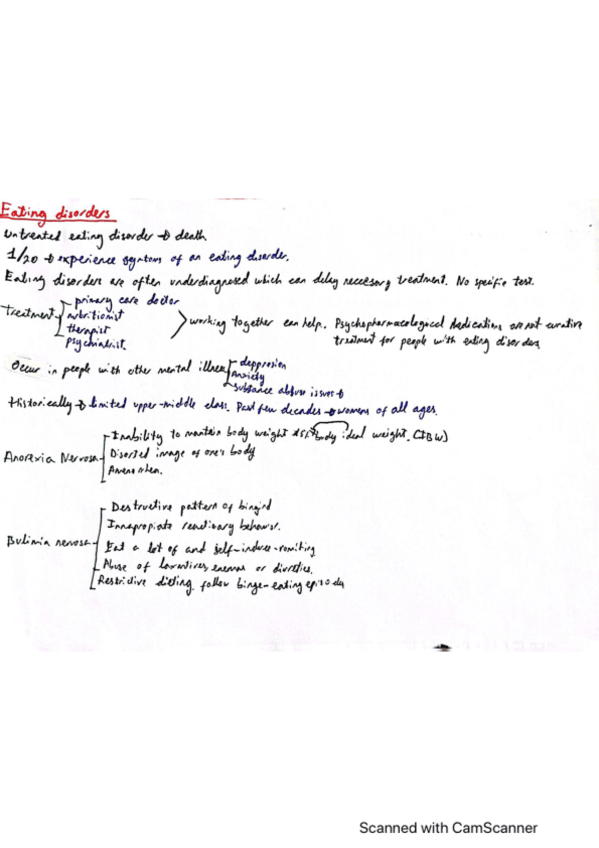 Eating disorders
Untreated eating disorder → death
1/20 → experience symtoms of an eating disorder.
Eating disorders are often underdiagnosed which can delay necessary treatment. No specific test.
Treatment
primary care doctor
nutritionist
therapist
psychiatrist.
working together can help. Psychopharmacological Medications are not curative
treatment for people with eating disorders
Occur in people with other mental illness
deppresion
Anxiety
substance abuse issues →
Historically → limited upper-middle class. Past few decades → womens of all ages.
Anorexia Nervosa
Inability to mantain body weight body ideal weight. (IBW)
Disorted image of one's body
Bulimia nervosa
Destructive pattern of
behavior.
Eat a lot of and self-induce-vomiting
Abuse of enemas or
Restrictive dieting follow binge-eating
Scanned with CamScanner